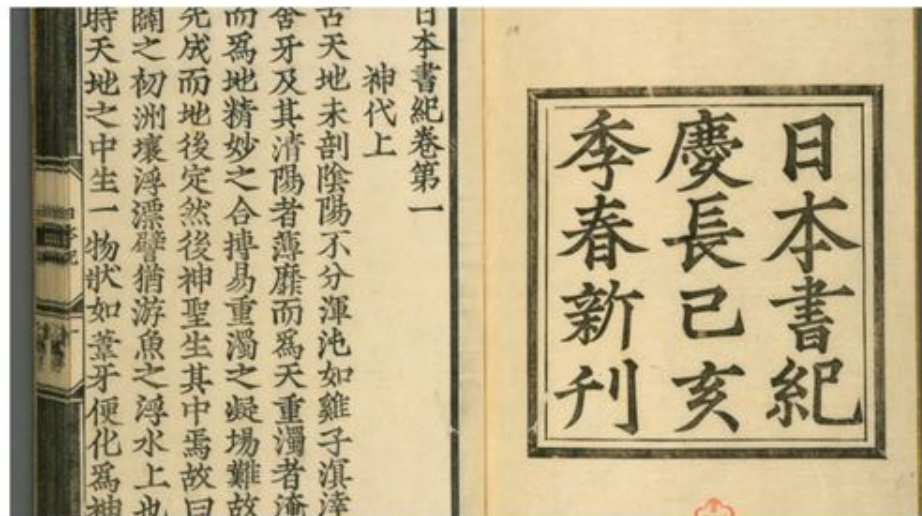 日本書紀
慶長己亥
季春新刊
日本書紀卷第一
神代上
古天地未剖陰陽不分渾沌如雞子溟涬
含牙及其清陽者薄靡而爲天重濁者淹
而爲地精妙之合搏易重濁之凝場難故
先成而地後定然後神聖生其中焉故曰
闢之初洲壤浮漂譬猶游魚之浮水上也
時天地之中生一物狀如葦牙便化爲神